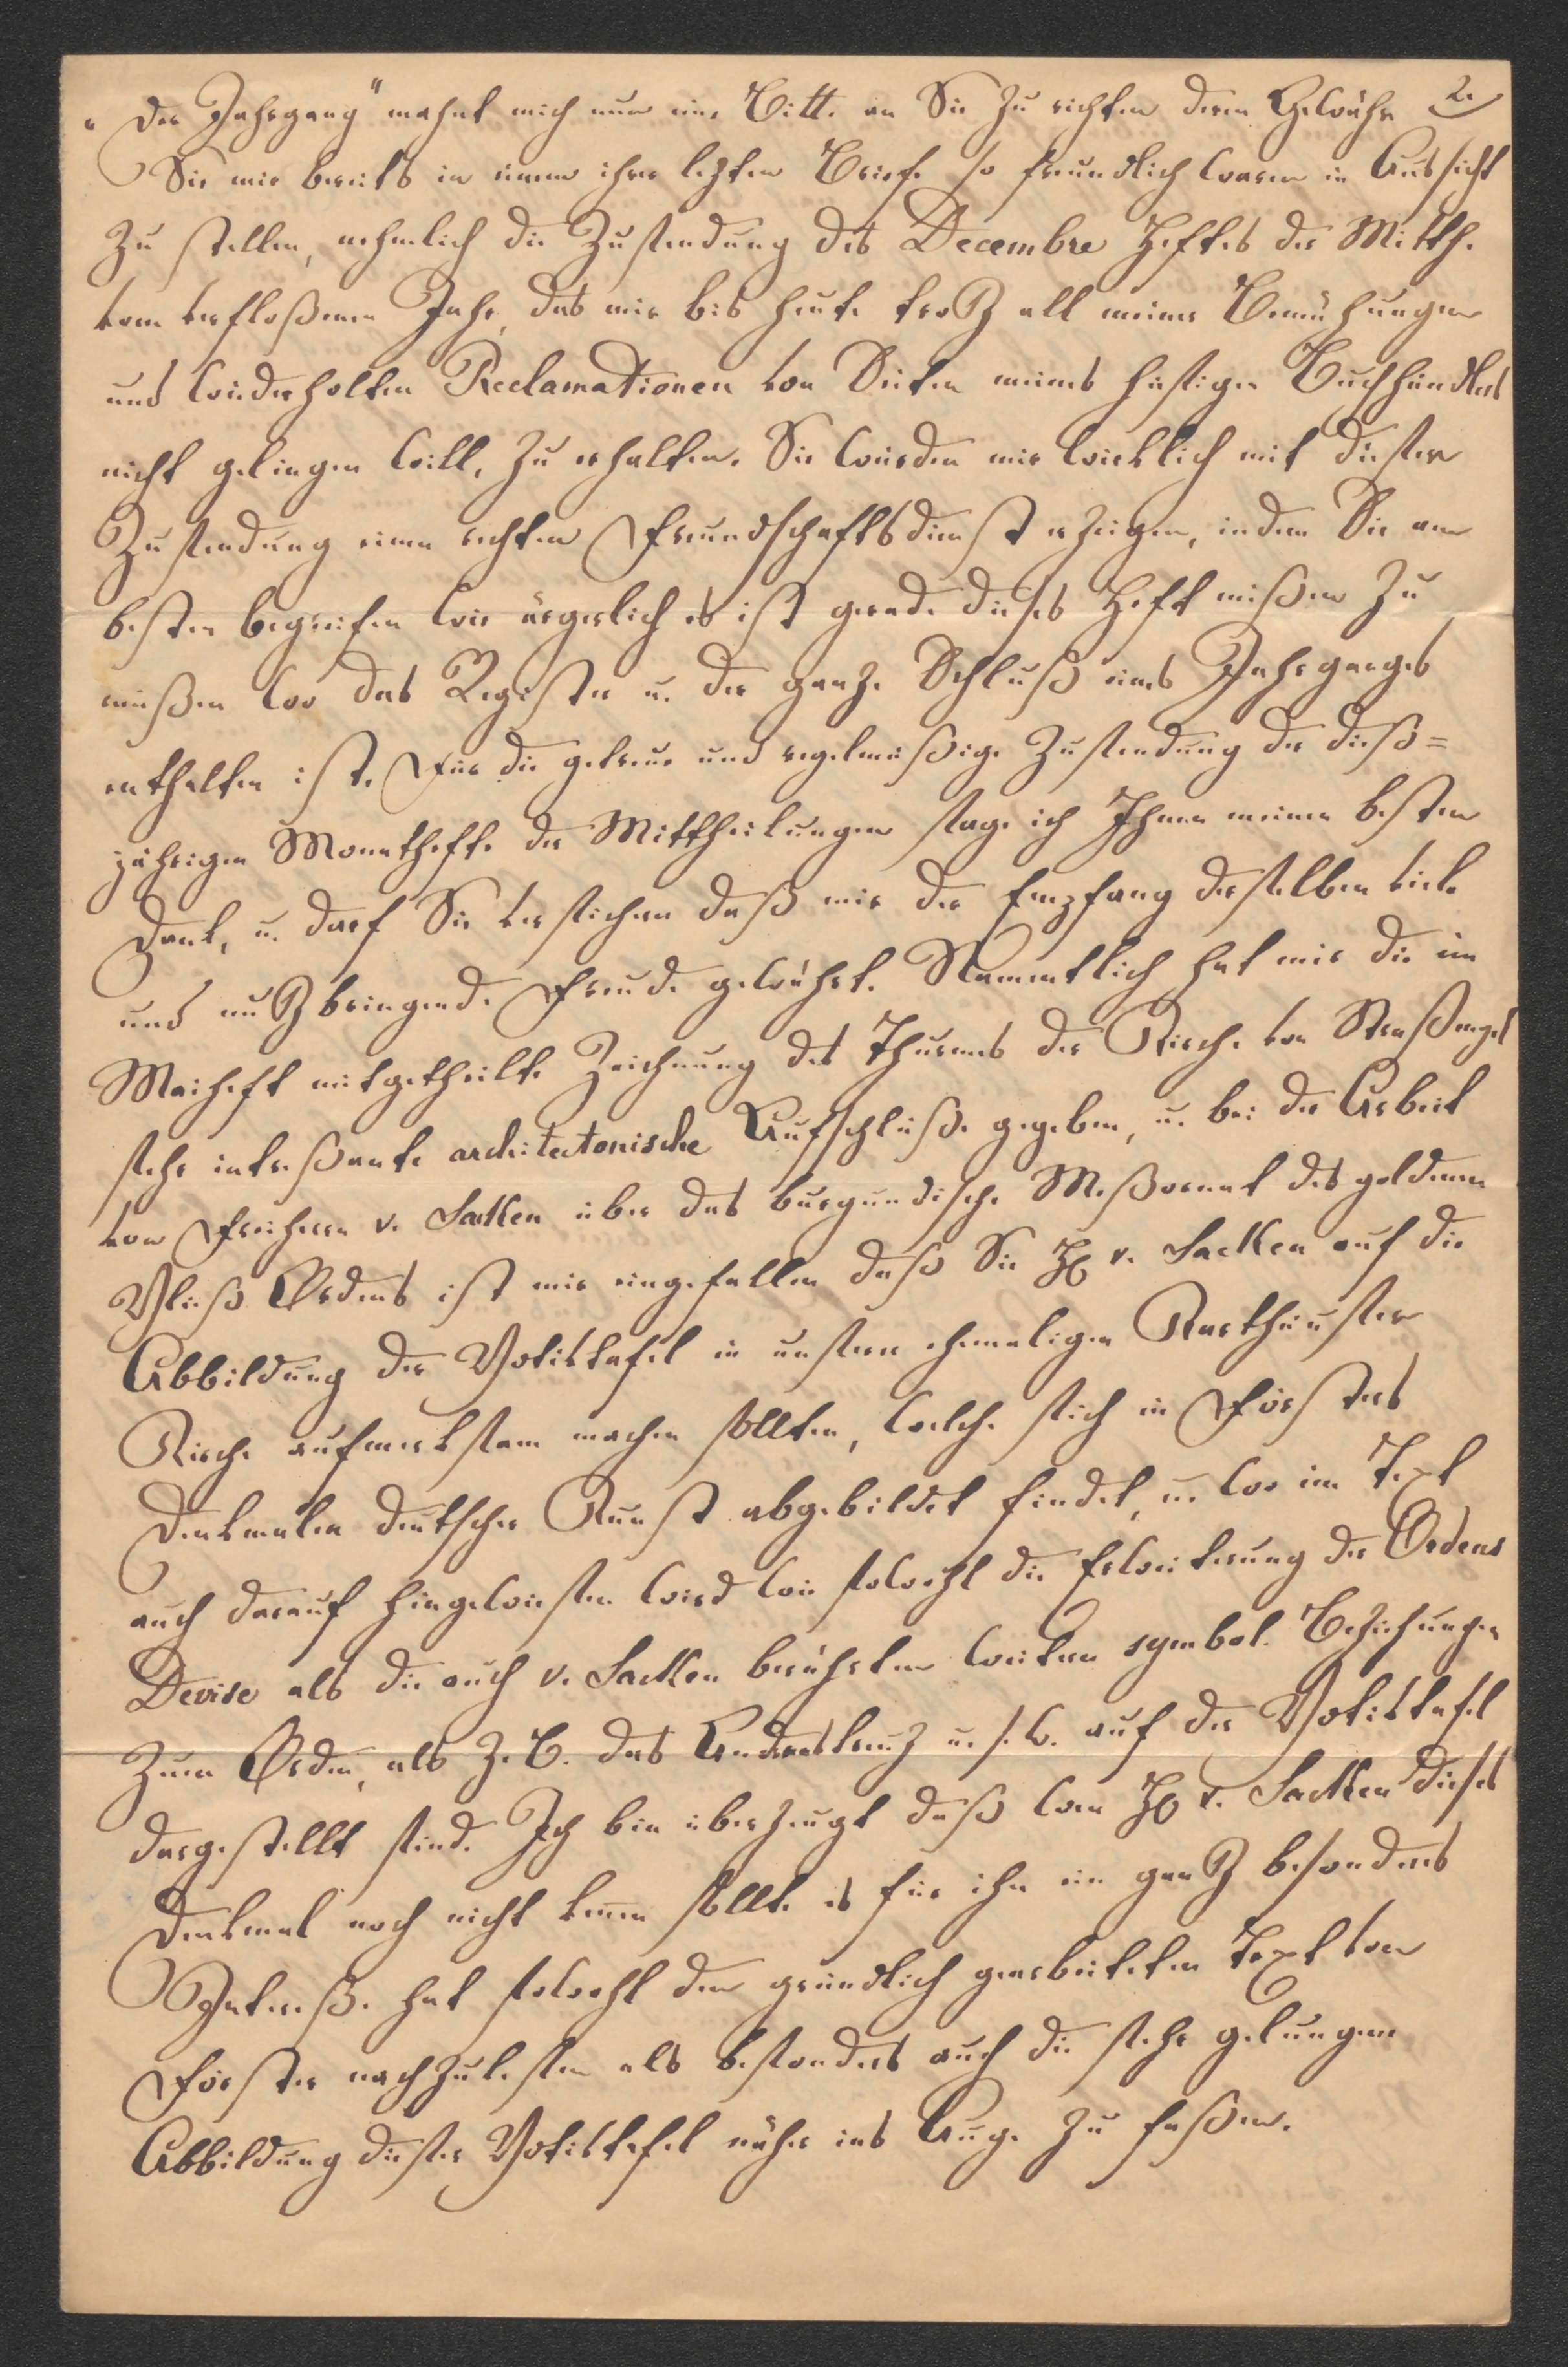 2.
„Der Jahrgang" mahnt mich nun eine Bitte an Sie zu richten deren Gewähr
Sie mir bereits in einem ihrer lezten Briefe so freundlich waren in Aussicht
zu stellen, nehmlich die Zusendung des Decembre Heftes der Mitth.
vom verfloßenen Jahr, das mir bis heute troz all meiner Bemühungen
und wiederholten Reclamationen von Seiten meines hiesigen Buchhändlers
nicht gelingen will, zu erhalten. Sie würden mir wirklich mit dieser
Zusendung einen rechten Freundschaftsdienst erzeigen, indem Sie am
besten begreifen wie ärgerlich es ist gerade dieses Heft mißen zu
müßen wo das Register u. der ganze Schluß eines Jahrganges
enthalten ist. Für die getreue und regelmäßige Zusendung der dieß=
jährigen Monathefte der Mittheilungen sage ich Ihnen meinen besten
Dank, u. darf Sie versichern daß mir der Empfang derselben viele
und nuzbringende Freude gewährt. Namentlich hat mir die im
Maiheft mitgetheilte Zeichnung des Thurmes der Kirche von Straßengel
sehr intereßante architectonische Aufschlüße gegeben, u. bei der Arbeit
von Freiherrn v. Sacken über das burgundische Meßornat des goldenen
Vließ Ordens ist mir eingefallen daß Sie H v. Sacken auf die
Abbildung der Votivtafel in unserer ehmaligen Karthäuser
Kirche aufmerksam machen sollten, welche sich in Försters
Denkmalen deutscher Kunst abgebildet findet, u. wo im Text
auch darauf hingewiesen wird wie sowohl die Erweiterung der Ordens
Devise als die auch v. Sacken berührten weitern symbol. Beziehungen
zum Orden, als z. B. das Andreaskreuz u. s. w. auf der Votivtafel
dargestellt sind. Ich bin überzeugt daß wenn H v. Sacken dieses
Denkmal noch nicht kennen sollte es für ihn ein ganz besonderes
Intereße hat sowohl den gründlich gearbeiteten Text von
Förster nachzulesen als besonders auch die sehr gelungene
Abbildung dieser Votivtafel näher ins Auge zu faßen.